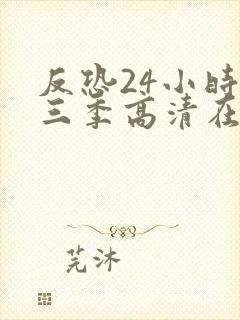 反恐24小時
三季高清在
芫沐